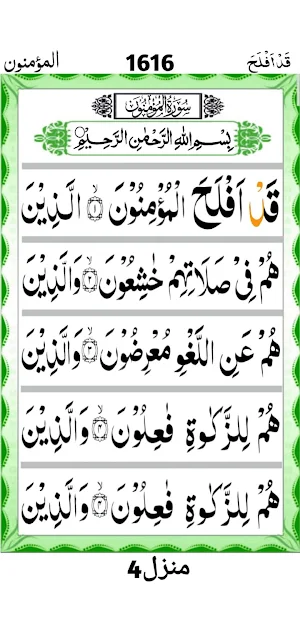 المؤمنون 1616 قَدْاَفْلَحَ
سُوْرَةُ الْمُؤْمِنُوْنَ
بِسْمِ اللهِ الرَّحْمٰنِ الرَّحِيْمِ
قَدْ اَفْلَحَ الْمُؤْمِنُوْنَ ۙ﴿۱﴾ الَّذِيْنَ
هُمْ فِيْ صَلَاتِهِمْ خٰشِعُوْنَ ۙ﴿۲﴾ وَالَّذِيْنَ
هُمْ عَنِ اللَّغْوِ مُعْرِضُوْنَ ۙ﴿۳﴾ وَالَّذِيْنَ
هُمْ لِلزَّكٰوةِ فٰعِلُوْنَ ۙ﴿۴﴾ وَالَّذِيْنَ
هُمْ لِلزَّكٰوةِ فٰعِلُوْنَ ۙ﴿۴﴾ وَالَّذِيْنَ
منزل4